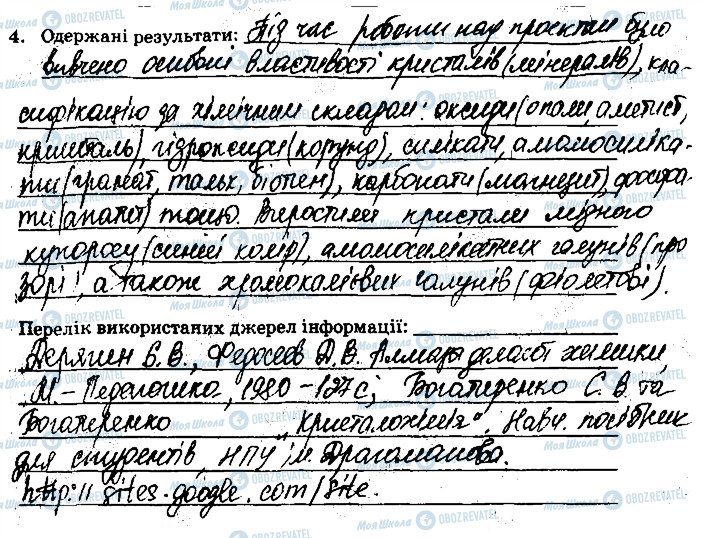 4. Одержані результати: Під час роботи над проектом було
вивчено особливі властивості кристалів (мінералів), кла-
сифікацію за хімічним складом: оксиди (опали, аметист,
кришталь), гідроксиди (корунд), силікати, алюмосиліка-
ти (гранат, тальк, біотит), карбонати (магнезит), фосфа-
ти (апатит) тощо. Виростили кристали мідного
купоросу (синій колір), алюмосилікатних галунів (про
зорі), а також хромокалієвих галунів (фіолетові).
Перелік використаних джерел інформації:
Дерягин Б. В., Федосеев Д. В. Алмазы делают химики
М – Педагогика, 1980 – 127 с; Богатиренко С. В. та
Богатиренко „Кристалохімія". Навч. посібник
для студентів, НПУ ім. Драгоманова.
http://sites.google.com/site.